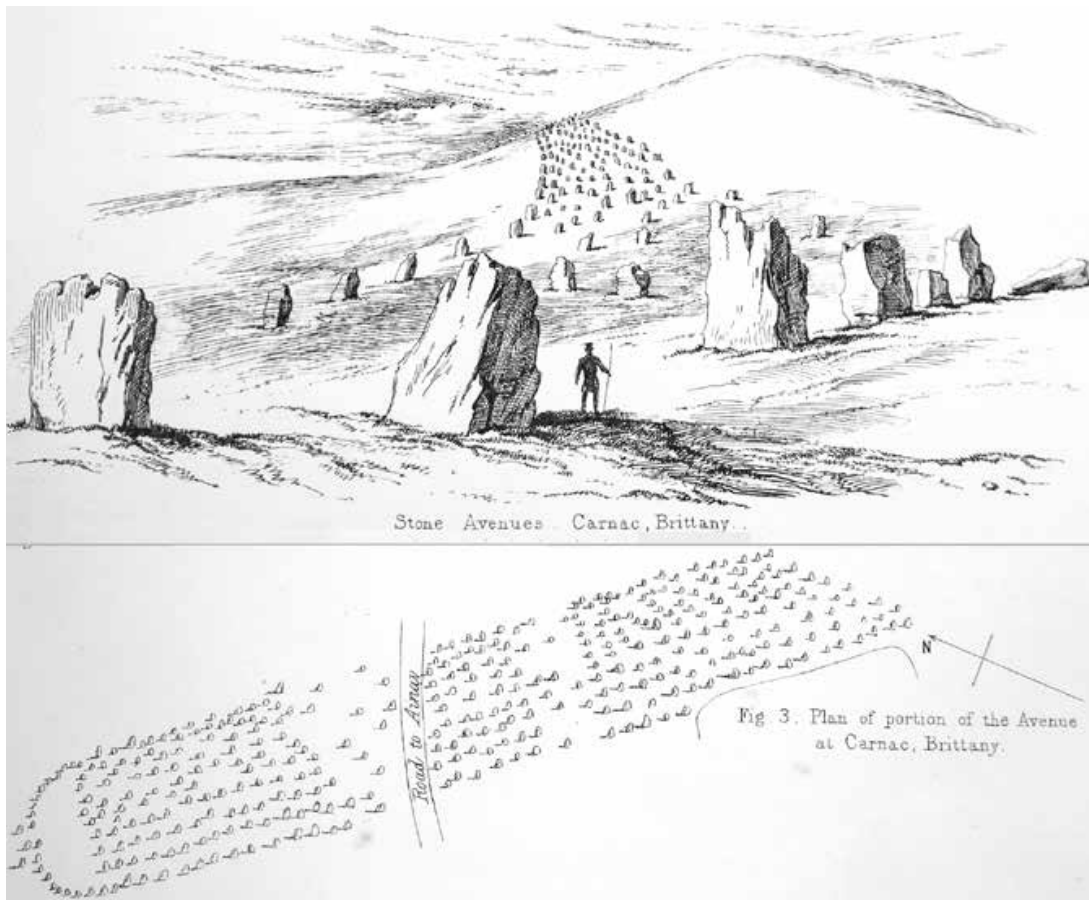 Stone Avenues. Carnac, Brittany.
Road to Arnay
N
Fig. 3. Plan of portion of the Avenue
at Carnac, Brittany.